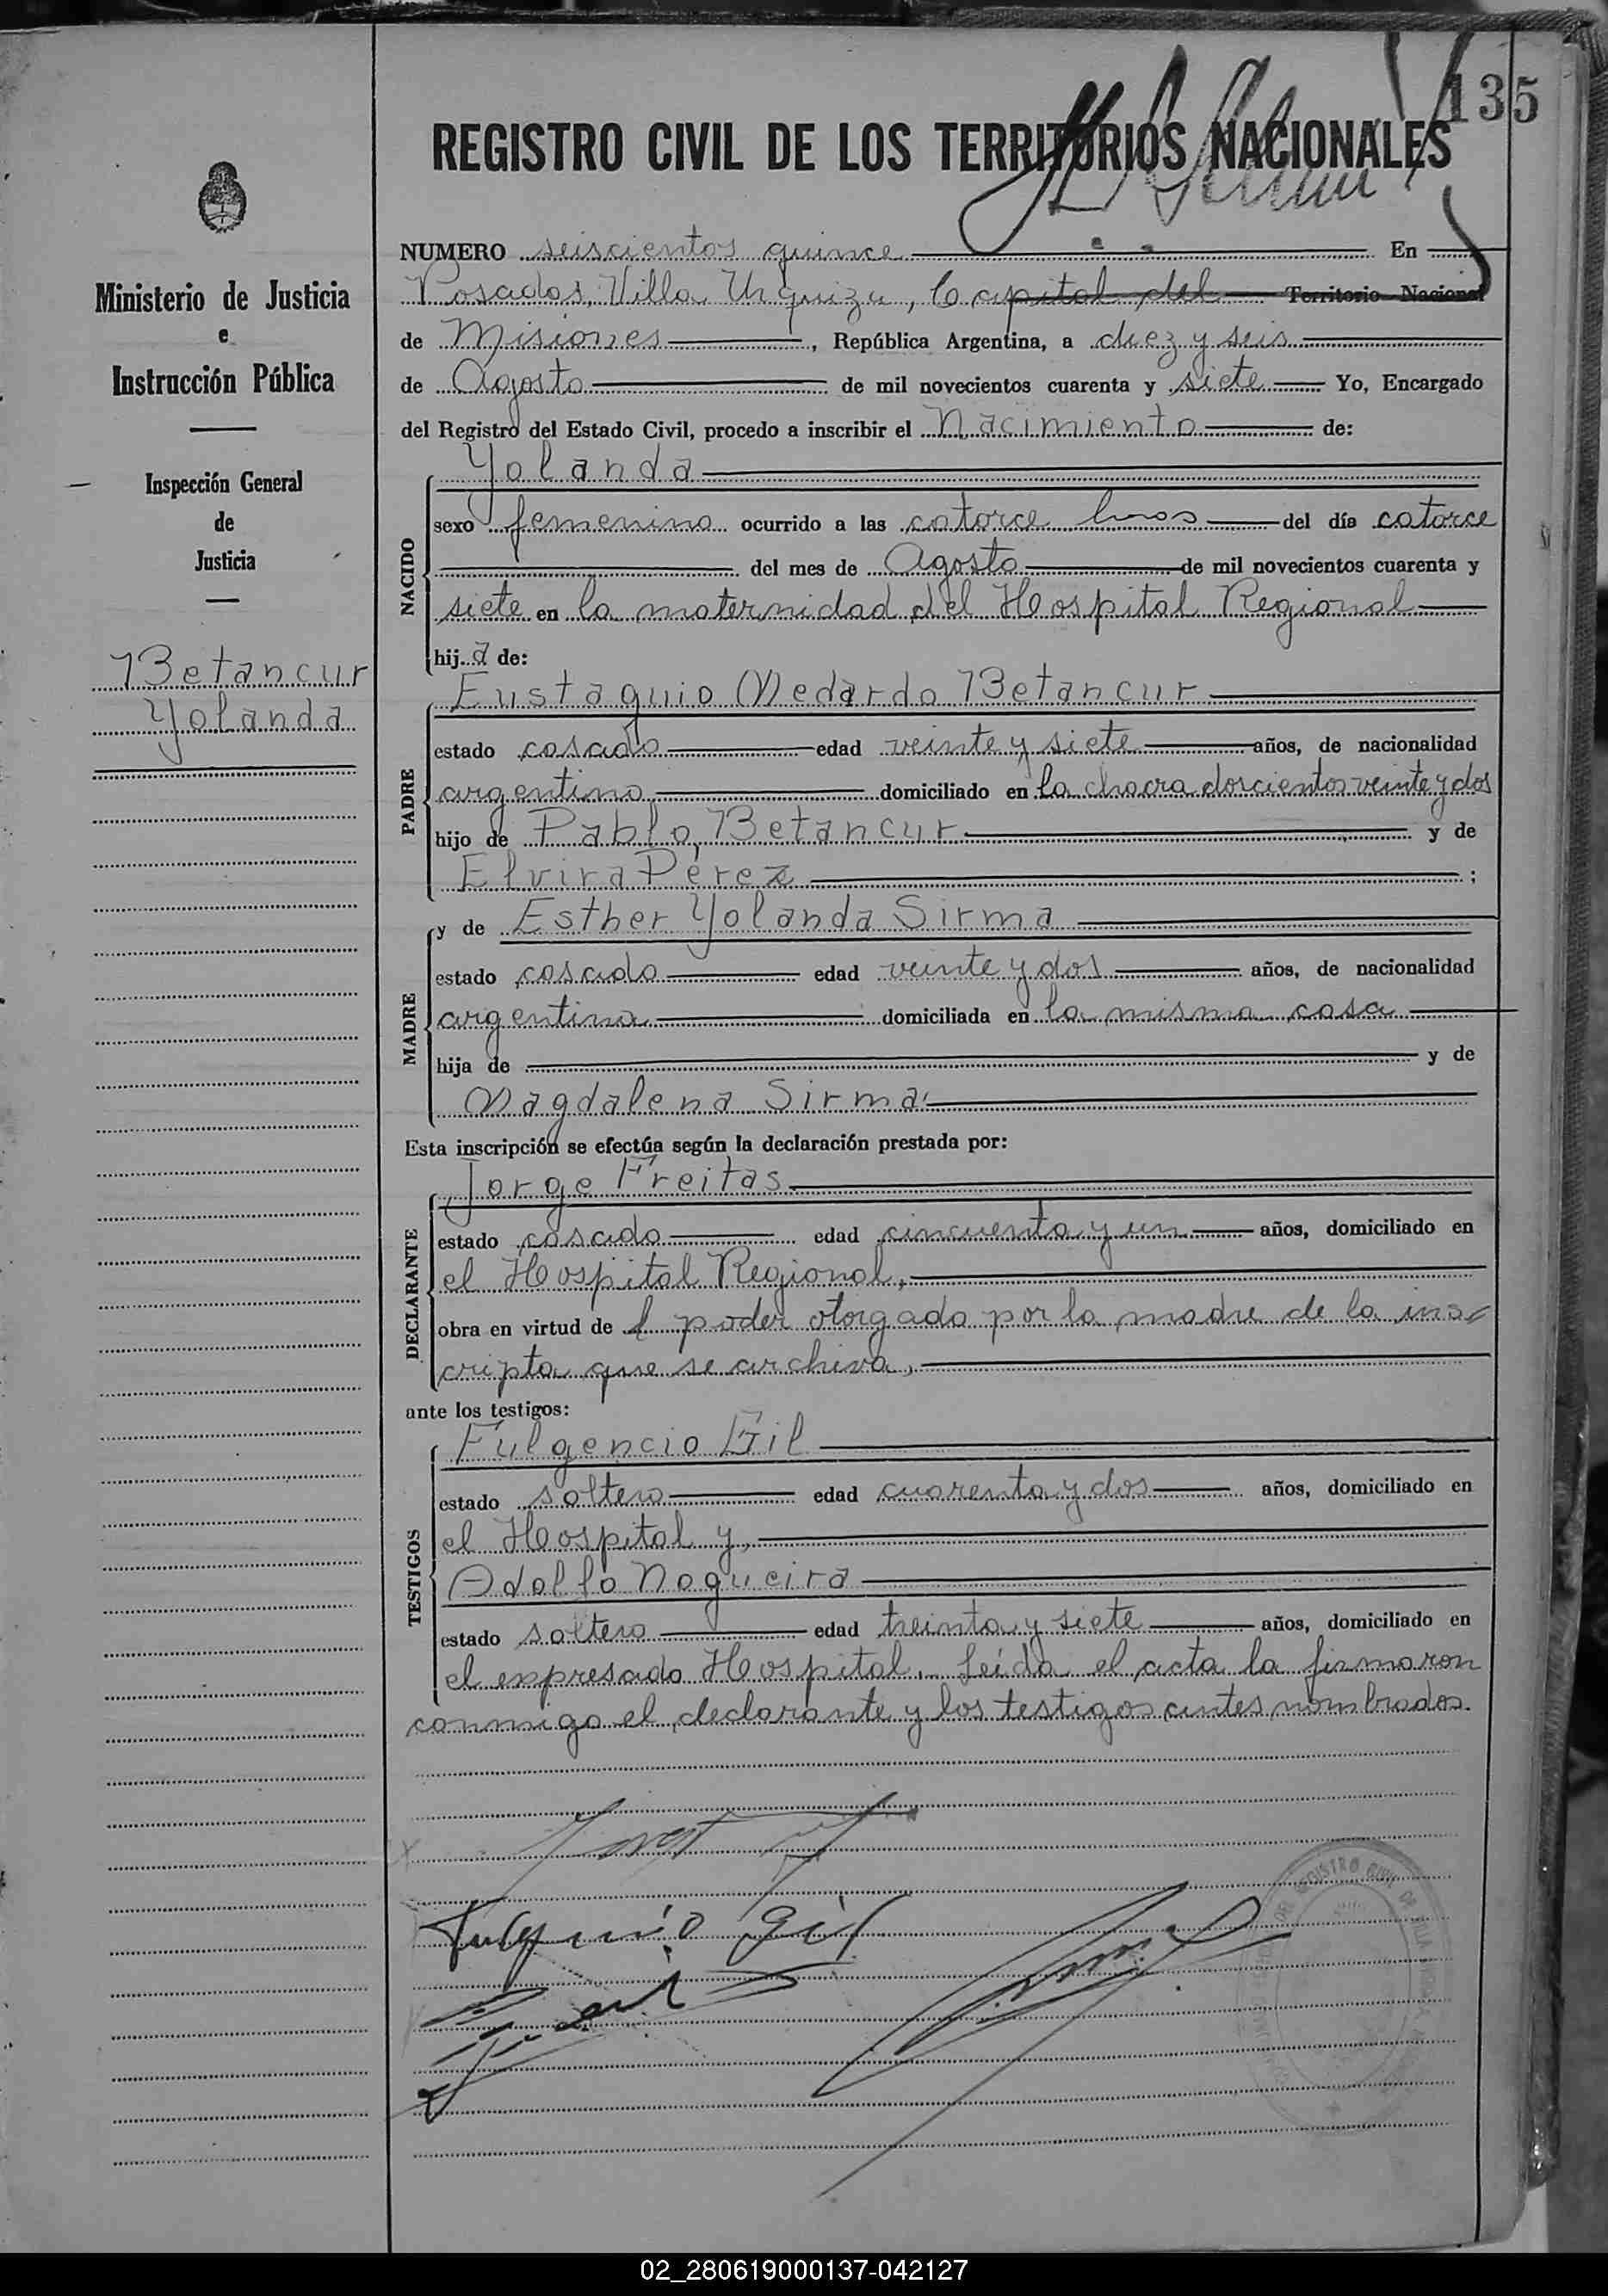 135
REGISTRO CIVIL DE LOS TERRITORIOS NACIONALES
Ministerio de Justicia
e
Instrucción Pública
Inspección General
de
Justicia
Betancur
Yolanda
NUMERO seiscientos quince En
Posadas, Villa Urquiza, Capital del Territorio Nacional
de Misiones, República Argentina, a diez y seis
de Agosto de mil novecientos cuarenta y siete Yo, Encargado
del Registro del Estado Civil, procedo a inscribir el Nacimiento de:
NACIDO
Yolanda
sexo femenino ocurrido a las catorce horas del día catorce
del mes de Agosto de mil novecientos cuarenta y
siete en la maternidad del Hospital Regional
hija de:
PADRE
Eustaquio Medardo Betancur
estado casado edad veinte y siete años, de nacionalidad
argentino domiciliado en la chacra doscientos veinte y dos
hijo de Pablo Betancur y de
Elvira Pérez ;
MADRE
y de Esther Yolanda Sirma
estado casada edad veinte y dos años, de nacionalidad
argentina domiciliada en la misma casa
hija de y de
Magdalena Sirma
Esta inscripción se efectúa según la declaración prestada por:
DECLARANTE
Jorge Freitas
estado casado edad cincuenta y un años, domiciliado en
el Hospital Regional,
obra en virtud de l poder otorgado por la madre de la ins-
cripta que se archiva,
ante los testigos:
TESTIGOS
Fulgencio Gil
estado soltero edad cuarenta y dos años, domiciliado en
el Hospital y,
Adolfo Nogueira
estado soltero edad treinta y siete años, domiciliado en
el expresado Hospital. Leída el acta la firmaron
conmigo el declarante y los testigos antes nombrados.
Fulgencio Gil
02_280619000137-042127